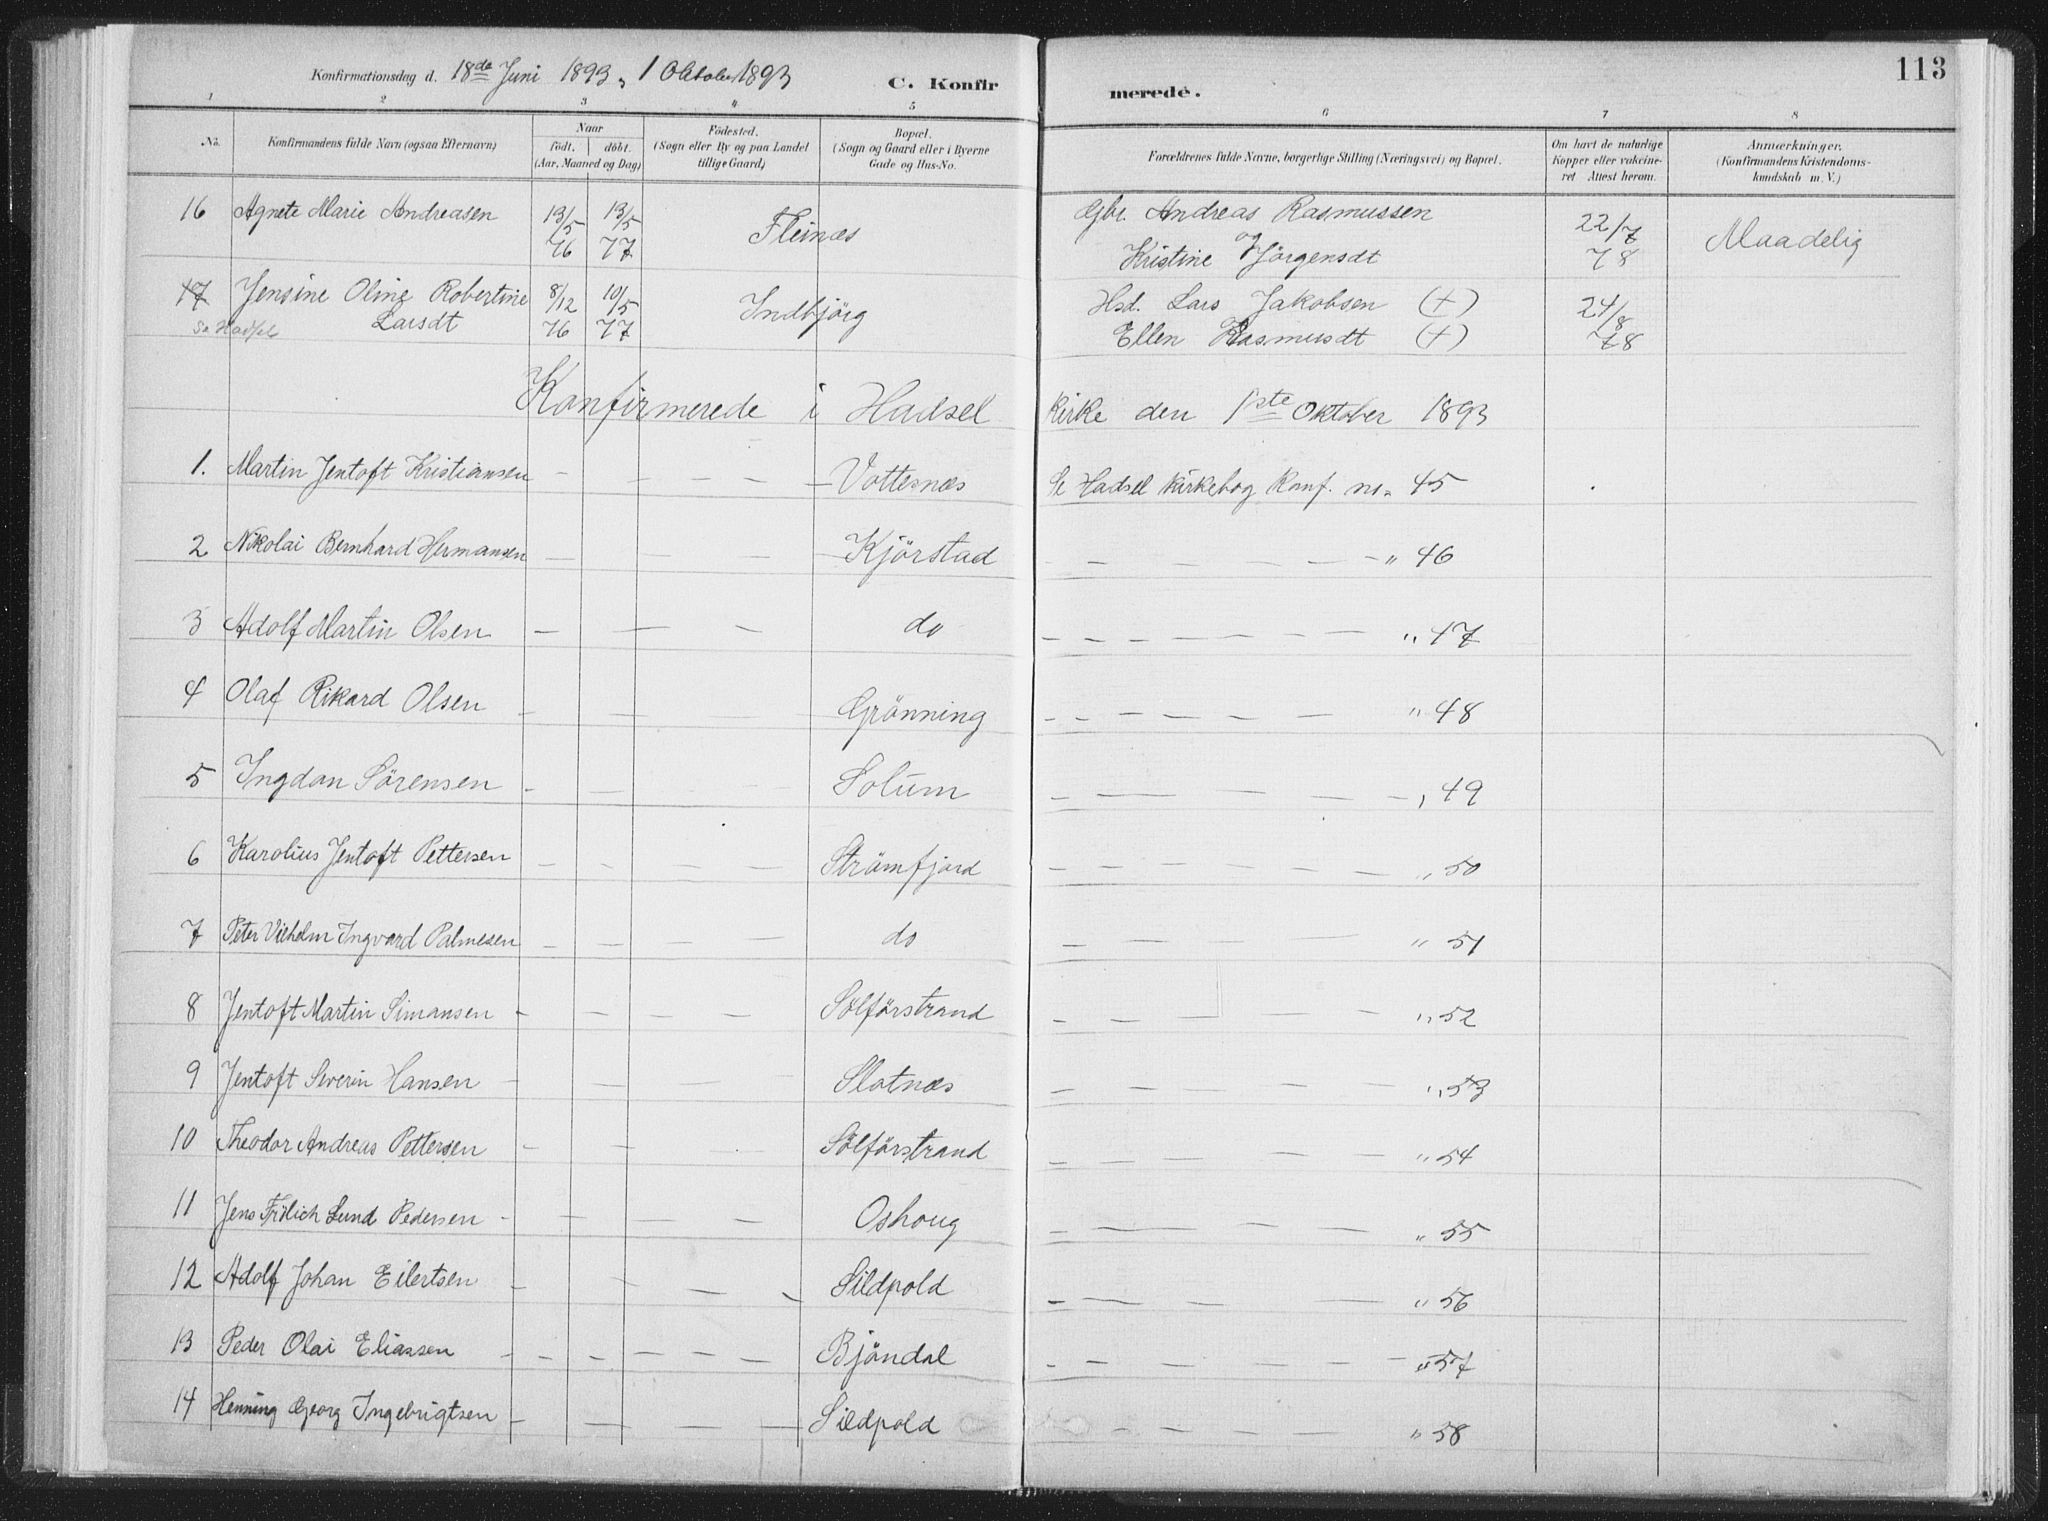 Konfirmationsdag d. 18de Juni 1893, 1 Oktober 1893
C. Konfirmerede. 113
1 2 3 4 5 6 7 8
No. Konfirmandens fulde Navn (ogsaa Efternavn) Naar födt. döbt. (Aar, Maaned og Dag) Födested. (Sogn eller By og paa Landet tillige Gaard) Bopæl. (Sogn og Gaard eller i Byerne Gade og Hus-No. Forældrenes fulde Navne, borgerlige Stilling (Næringsvei) og Bopæl. Om havt de naturlige Kopper eller vakcineret Attest herom. Anmærkninger. (Konfirmandens Kristendomskundskab m. V.)
16 Agnete Marie Andreasen 13/5 76 13/5 77 Fleinæs Gbr. Andreas Rasmussen og Kristine Jörgensdt 22/7 78 Maadelig
17 Jensine Oline Robertine Larsdt 8/12 76 10/5 77 Indbjörg Hsd. Lars Jakobsen (+) Ellen Rasmusdt (+) 24/8 78
Se Hadsel
Konfirmerede i Hadsel Kirke den 1ste Oktober 1893
1. Martin Jentoft Kristiansen — — — — Vottesnæs Se Hadsel Kirkebog Konf. no. 45
2 Nikolai Bernhard Hermansen — — — — Kjörstad — — — — — " 46
3 Adolf Martin Olsen — — — do — — — — — " 47
4 Olaf Rikard Olsen — — Grönning — — — — — " 48
5 Ingdan Sörensen — — — — Solum — — — — — " 49
6 Karolius Jentoft Pettersen — — — — Strömfjord — — — — — " 50
7 Peter Vilhelm Ingvard Palmesen — — — — do — — — — " 51
8 Jentoft Martin Simonsen — — — — Sölförstrand — — — — — " 52
9 Jentoft Severin Hansen — — — — Slotnæs — — — — — " 53
10 Theodor Andreas Pettersen — — — Sölförstrand — — — — — " 54
11 Jens Frölich Lund Pedersen — — — — Oshoug — — — — — " 55
12 Adolf Johan Eilertsen — — — — Sildpold — — — — " 56
13 Peder Olai Eliassen — — — — — — Bjöndal — — — — — " 57
14 Henning Georg Ingebrigtsen — — — — Sildpold — — — — — " 58